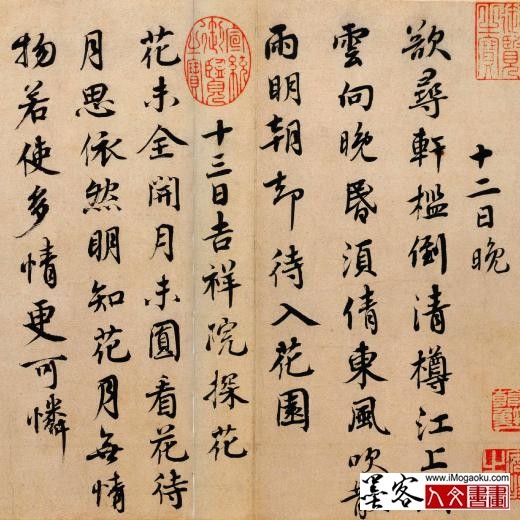 十二日晚
欲尋軒檻倒清樽江上
雲向晚昏須倩東風吹散
雨明朝却待入花園
十三日吉祥院探花
花未全開月未圓看花待
月思依然明知花月無情
物若使多情更可憐
宣統御覽之寶
墨客
www.iMogaoku.com
人文書畫